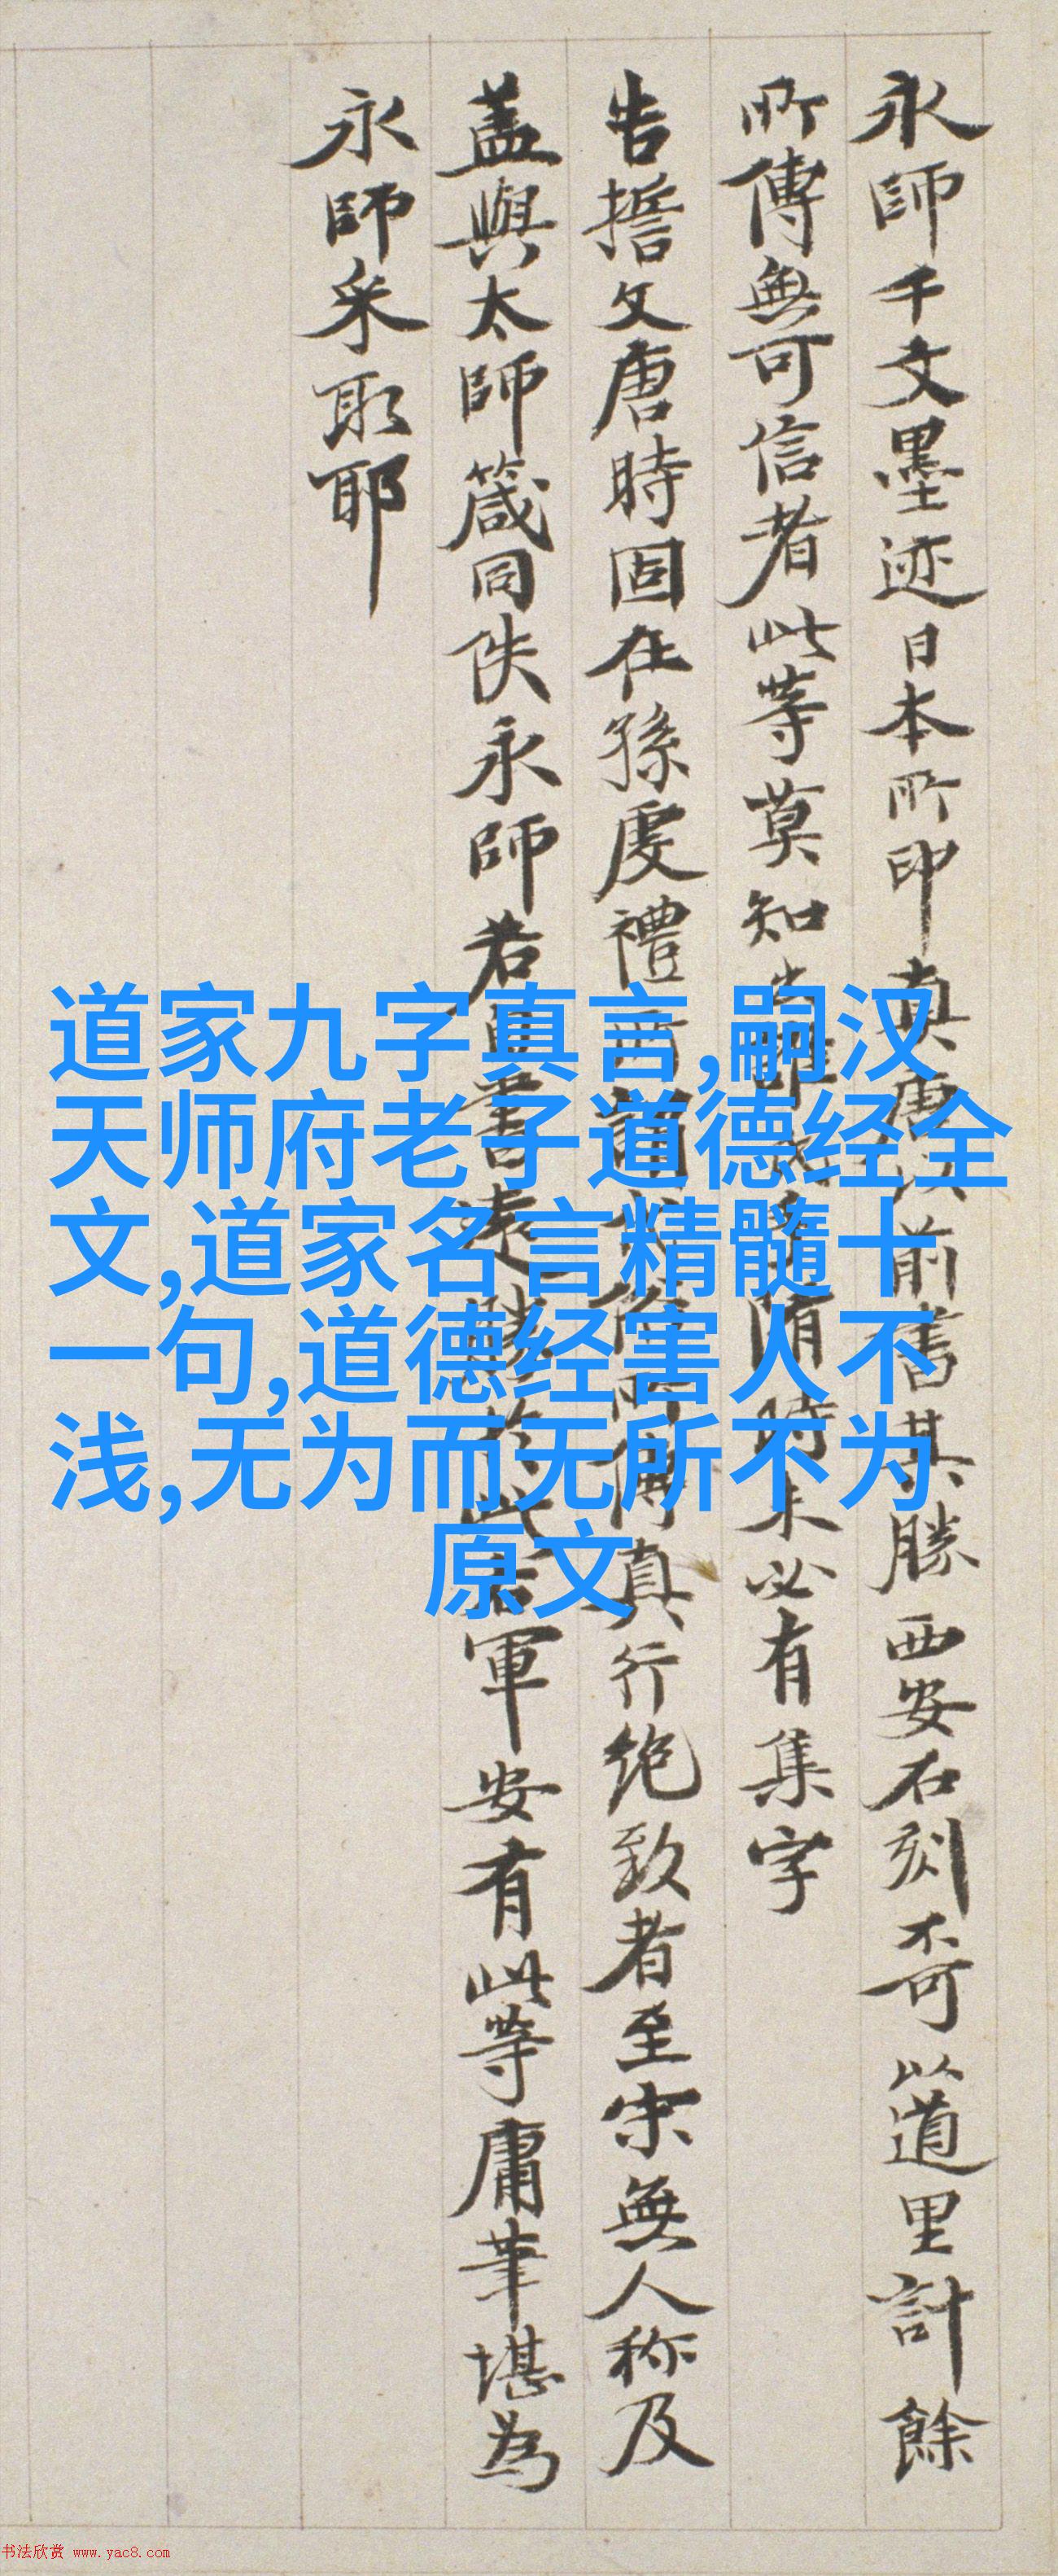 永師千文墨迹日本所印真唐以前書其勝西安石刻不可以道里計餘
所傳無可信者此等莫知隋時未必有集字
告擔文唐時固在孫虔禮行絶致者至宋無人称及
盖與太師箴同佚永師若軍安有此等庸筆堪為
永師采取耶
道家九字真言,嗣汉
天师府老子道德经全
文,道家名言精髓十
一句,道德经害人不
浅,无为而无所不为
原文
书法欣赏 www.yac8.com